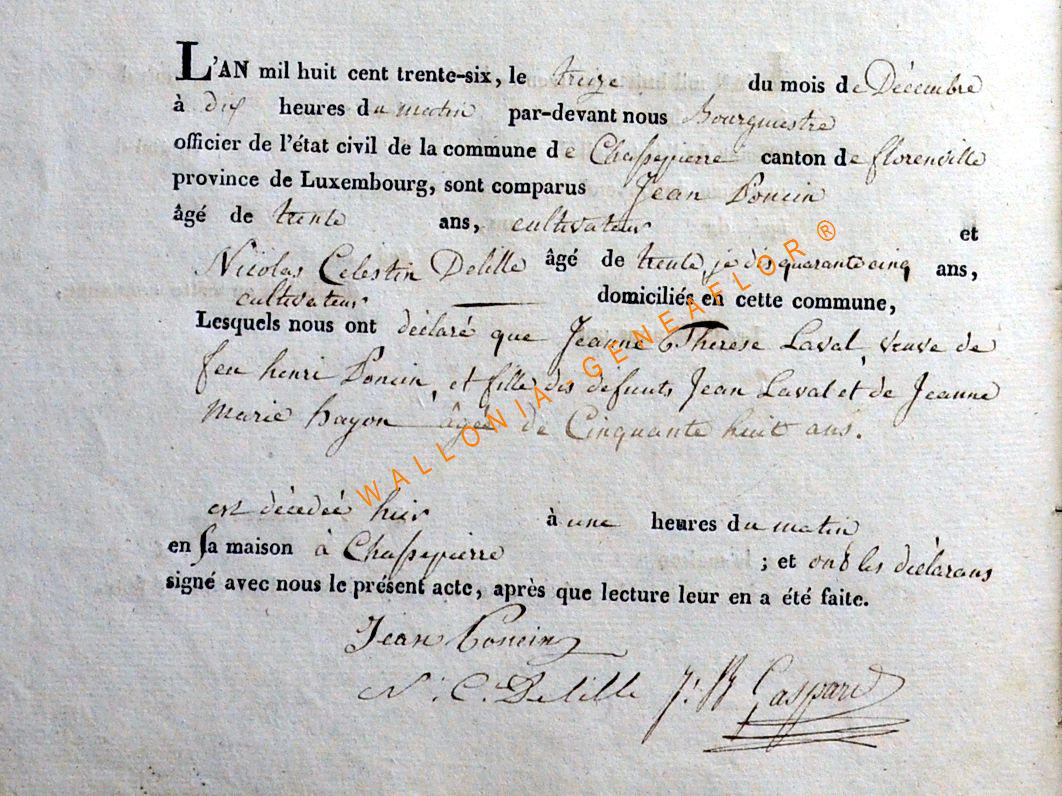 L'AN mil huit cent trente-six, le treize du mois de Décembre
à dix heures du matin par-devant nous Bourgmestre
officier de l'état civil de la commune de Chassepierre canton de florenville
province de Luxembourg, sont comparus Jean Poncin
âgé de trente ans, cultivateur et
Nicolas Celestin Delille âgé de trente je dis quarante cinq ans,
cultivateur domiciliés en cette commune,
Lesquels nous ont déclaré que Jeanne Therese Laval, veuve de
feu henri Poncin, et fille des défunts Jean Laval et de Jeanne
Marie hayon âgée de Cinquante huit ans.
est décédée hier à une heures du matin
en sa maison à Chassepierre ; et ont les déclarans
signé avec nous le présent acte, après que lecture leur en a été faite.
Jean Poncin
N. C. Delille J. B. Gaspard
WALLONIA-GENEAFLOR ®